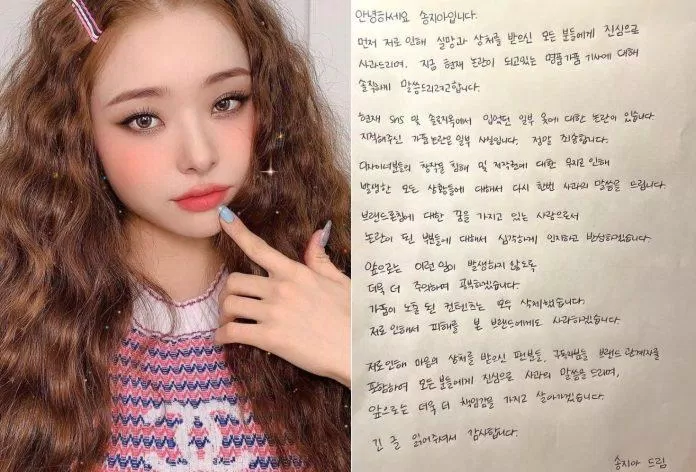 안녕하세요 송지아입니다.
먼저 저로 인해 실망과 상처를 받으신 모든 분들에게 진심으로
사과드리며, 지금 현재 논란이 되고있는 명품가품 기사에 대해
솔직하게 말씀드리려고합니다.
현재 SNS 및 솔로지옥에서 입었던 일부 옷에 대한 논란이 있습니다
지적해주신 가품논란은 일부 사실입니다. 정말 죄송합니다.
디자이너분들의 창작물 침해 및 저작권에 대한 무지로 인해
발생한 모든 상황들에 대해서 다시 한번 사과의 말씀을 드립니다.
브랜드론칭에 대한 꿈을 가지고 있는 사람으로서
논란이 된 부분들에 대해서 심각하게 인지하고 반성하겠습니다.
앞으로는 이런 일이 발생하지 않도록
더욱 더 주의하며 공부하겠습니다.
가품이 노출 된 컨텐츠는 모두 삭제했습니다.
저로 인해서 피해를 본 브랜드에게도 사과하겠습니다.
저로인해 마음의 상처를 받으신 팬분들, 구독자분들 브랜드 관계자를
포함하여 모든분들에게 진심으로 사과의 말씀을 드리며,
앞으로는 더욱 더 책임감을 가지고 살아가겠습니다.
긴 글 읽어주셔서 감사합니다.
송지아 드림